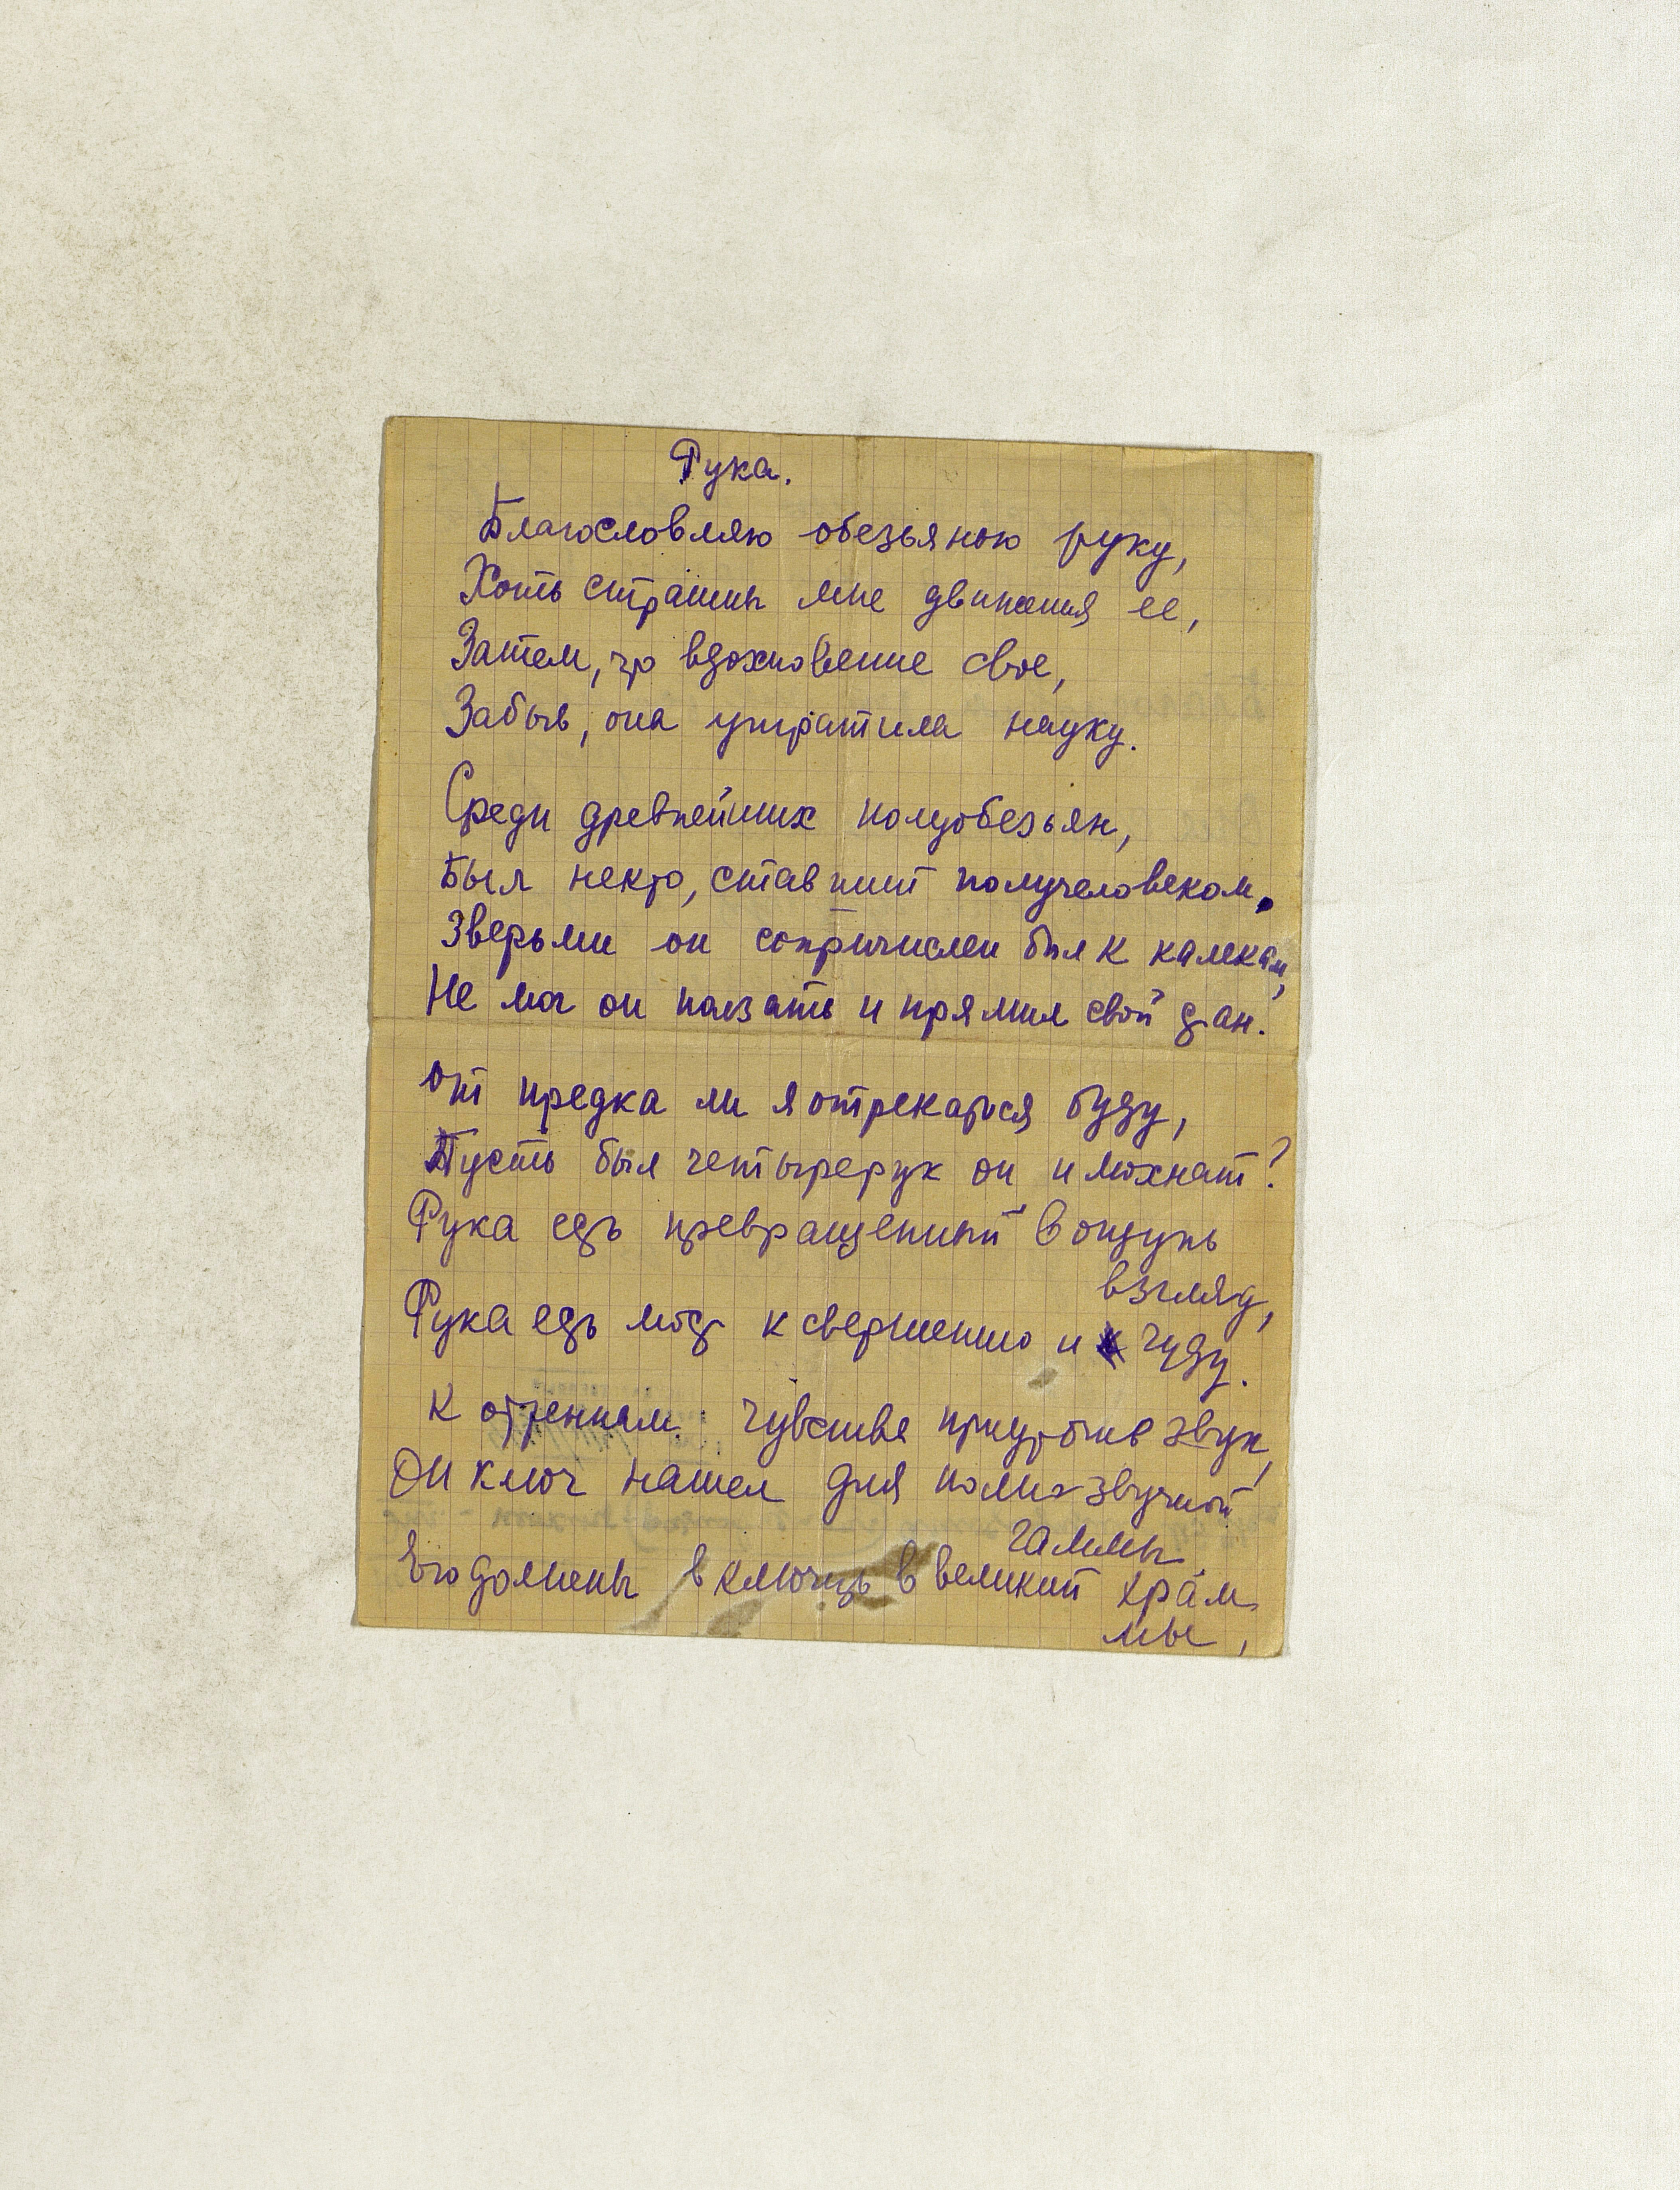 Рука.
Благословляю обезьянью руку,
Хоть страшны мне движения ее,
Затем, что вдохновение свое,
Забыв, она утратила науку.
Среди древнейших полуобезьян,
Был некто, ставший получеловеком.
Зверьми он сопричислен был к калекам,
Не мог он ползать и прямил свой стан.
От предка ли я отрекаться буду,
Пусть был четырерук он и мохнат?
Рука есть превращенный в ощупь
взгляд,
Рука есть мост к свершению и чуду.
К оттенкам чувства приустроив звук,
Он ключ нашел для полнозвучной
гаммы
Его должны включить в великий храм
мы,